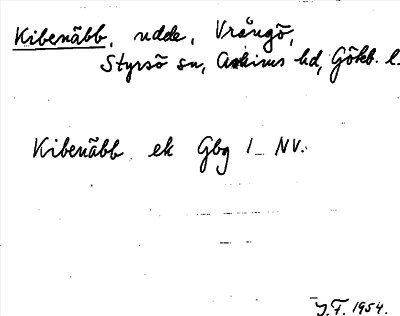 Kibenäbb, udde, Vrångö,
Styrsö sn, Askims hd, Gökb. l.
Kibenäbb ek Gbg 1 - NV.
J.F. 1954.